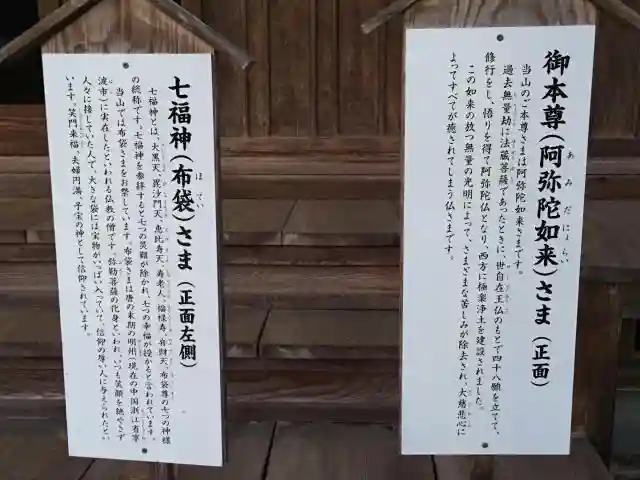 御本尊(阿弥陀如来)さま(正面)
あみだにょらい
当山のご本尊さまは阿弥陀如来さまです。
過去無量劫に法蔵菩薩であったときに、世自在王仏のもとで四十八願を立てて、
修行をし、悟りを得て阿弥陀仏となり、西方に極楽浄土を建設されました。
この如来の放つ無量の光明によって、さまざまな苦しみが除去され、大慈悲心に
よってすべてが癒されてしまう仏さまです。
七福神(布袋)さま(正面左側)
ほてい
七福神とは、大黒天、毘沙門天、恵比寿天、寿老人、福禄寿、弁財天、布袋尊の七つの神様
の総称です。七福神を参拝すると七つの災難が除かれ、七つの幸福が授かると言われています。
当山では布袋さまをお祭しています。布袋さまは唐の末期の明州(現在の中国浙江省寧
波市)に実在したといわれる仏教の僧です。弥勒菩薩の化身といわれ、いつも笑顔を絶やさず
人々に接していた人で、大きな袋には宝物がいっぱい入っていて、信仰の厚い人に与えられたとい
います。笑門来福、夫婦円満、子宝の神として信仰されています。